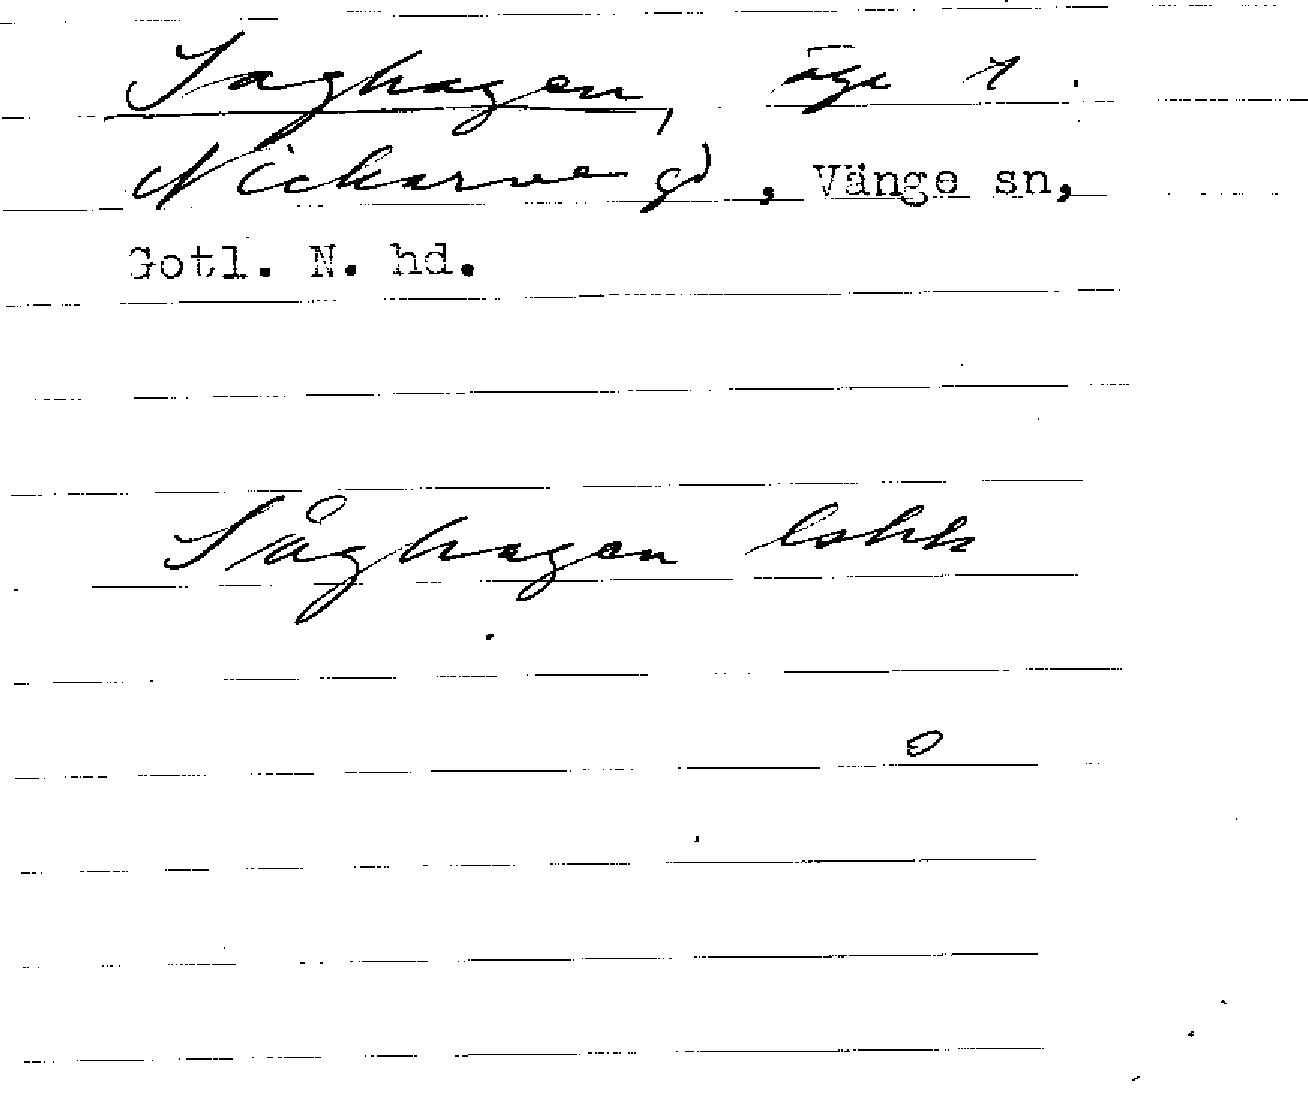 Saghagen, äga 1.
Nickarve gd, Vänge sn,
Gotl. N. hd.
Såghagen